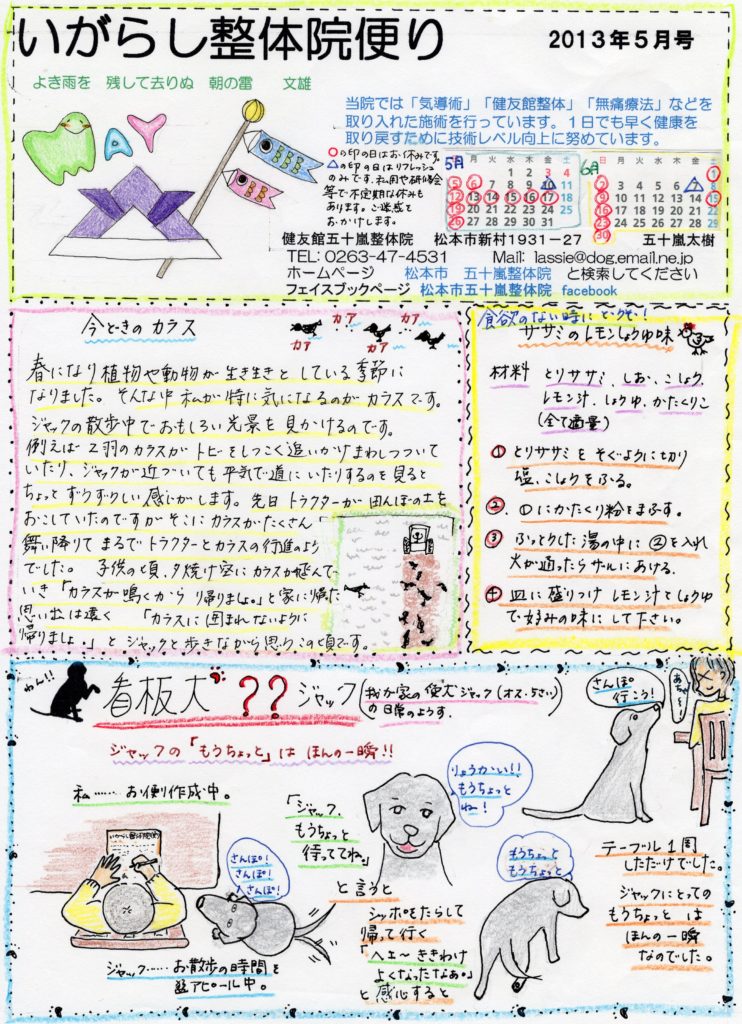 いがらし整体院便り
2013年5月号
よき雨を 残して去りぬ 朝の雷 文雄
MAY
当院では「気導術」「健友館整体」「無痛療法」などを
取り入れた施術を行っています。1日でも早く健康を
取り戻すために技術レベル向上に努めています。
○の印の日はお休みです。
△の印の日はリフレッシュ
のみです。私用や研修会
等で不定期な休みも
あります。ご迷惑を
おかけします。
5月
月 火 水 木 金 土
1 2 3 4
5 6 7 8 9 10 11
12 13 14 15 16 17 18
19 20 21 22 23 24 25
26 27 28 29 30 31
6月
日 月 火 水 木 金 土
1
2 3 4 5 6 7 8
9 10 11 12 13 14 15
16 17 18 19 20 21 22
23 24 25 26 27 28 29
30
健友館五十嵐整体院 松本市新村1931−27 五十嵐太樹
TEL: 0263-47-4531 Mail: lassie@dog.email.ne.jp
ホームページ 松本市 五十嵐整体院 と検索してください
フェイスブックページ 松本市五十嵐整体院 facebook
今どきのカラス
カァ カァ
カァ カァ
春になり植物や動物が生き生きとしている季節に
なりました。そんな中私が特に気になるのがカラスです。
ジャックの散歩中でおもしろい光景を見かけるのです。
例えば2羽のカラスがトビをしつこく追いかけまわしつついて
いたり、ジャックが近づいても平気で道にいたりするのを見ると
ちょっとずうずうしい感じがします。先日トラクターが田んぼの土を
おこしていたのですがそこにカラスがたくさん
舞い降りてまるでトラクターとカラスの行進のよう
でした。子供の頃、夕焼け空にカラスが飛んで
いき「カラスが鳴くから帰りましょ。」と家に帰った
思い出は遠く 「カラスに囲まれないように
帰りましょ。」とジャックと歩きながら思うこの頃です。
食欲のない時にどうぞ!
ササミのレモンしょうゆ味
材料 とりササミ、しお、こしょう、
レモン汁、しょうゆ、かたくりこ
(全て適量)
① とりササミをそぐように切り
塩、こしょうをふる。
② ①にかたくり粉をまぶす。
③ ふっとうした湯の中に②を入れ
火が通ったらザルにあける。
④ 皿に盛りつけレモン汁としょうゆ
で好みの味にして下さい。
わん!!
看板犬??ジャック
(我が家の愛犬ジャック(オス・5さい)
の日常のようす。
ジャックの「もうちょっと」はほんの一瞬!!
私……お便り作成中。
いがらし整体院便り
さんぽ!
さんぽ!
さんぽ!
ジャック……お散歩の時間を
猛アピール中。
「ジャック、
もうちょっと
待っててね。」
と言うと
りょうかい!!
もうちょっと
ね!
シッポをたらして
帰って行く
「へェ〜ききわけ
よくなったなあ。」
と感心すると
もうちょっと
もうちょっと
さんぽ
行こう!
あちゃ〜
テーブル1周
しただけでした。
ジャックにとっての
もうちょっとは
ほんの一瞬
なのでした。